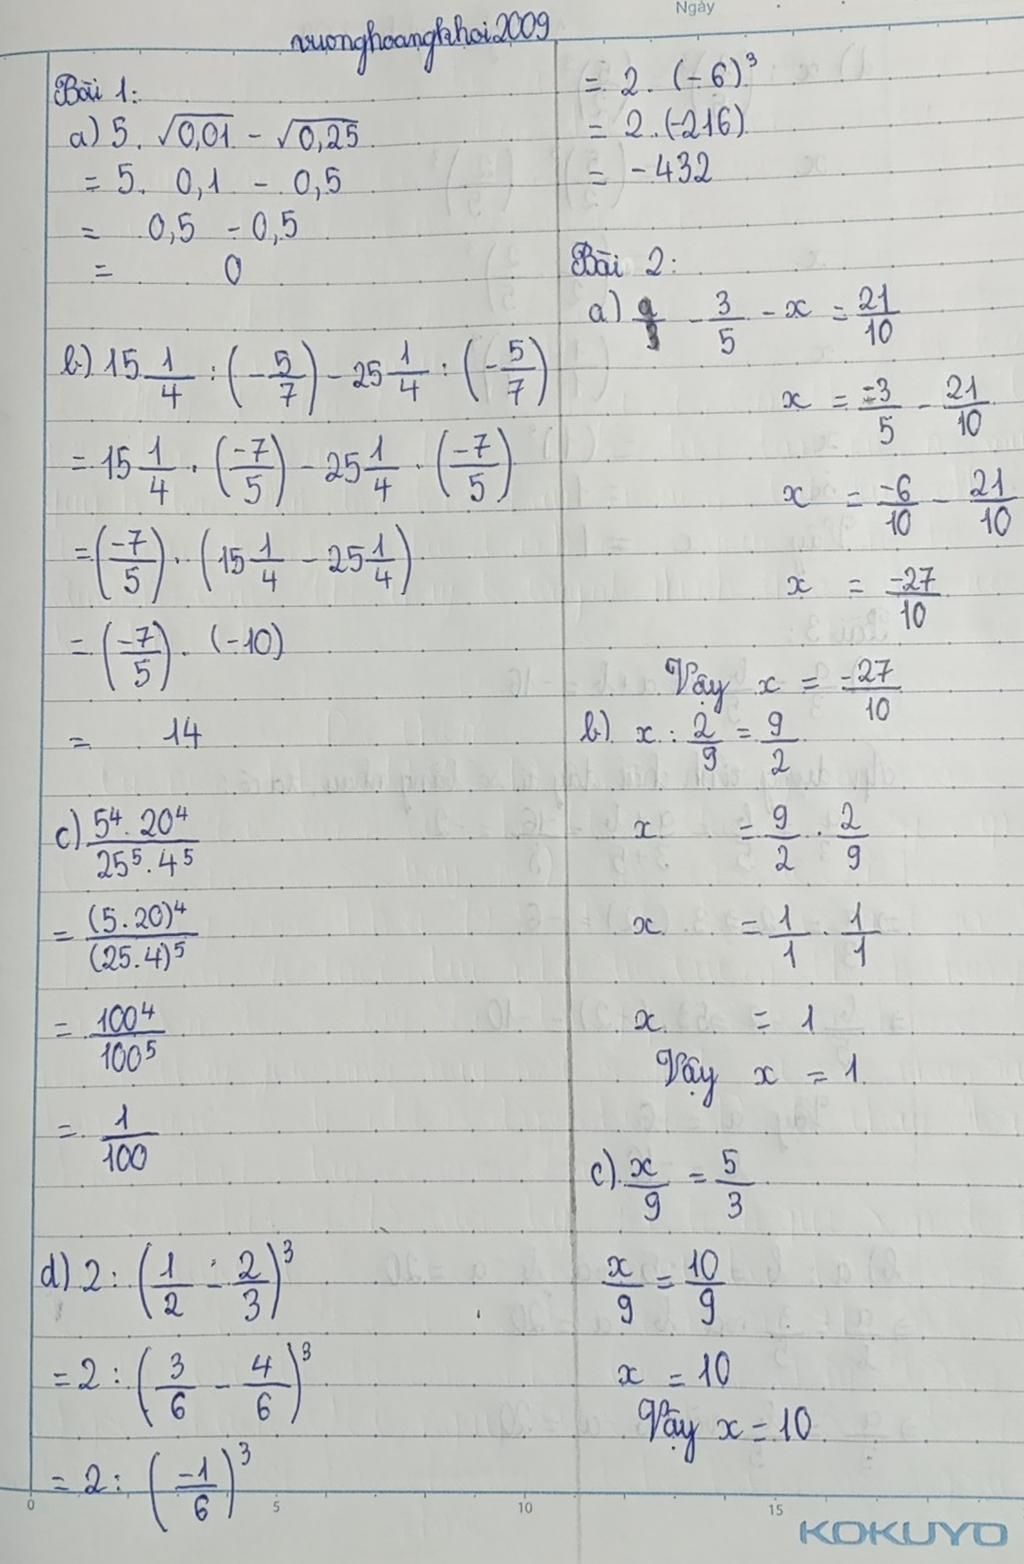 Ngày
vuonghoangkhoi2009
Bài 1:
a) 5. √0,01 - √0,25
= 5. 0,1 - 0,5
= 0,5 - 0,5
= 0
b) 15 1/4 : (-5/7) - 25 1/4 : (-5/7)
= 15 1/4 . (-7/5) - 25 1/4 . (-7/5)
= (-7/5) . (15 1/4 - 25 1/4)
= (-7/5) . (-10)
= 14
c) 5⁴. 20⁴ / 25⁵. 4⁵
= (5.20)⁴ / (25.4)⁵
= 100⁴ / 100⁵
= 1/100
d) 2 : (1/2 - 2/3)³
= 2 : (3/6 - 4/6)³
= 2 : (-1/6)³
= 2. (-6)³
= 2.(-216)
= -432
Bài 2:
a) - 3/5 - x = 21/10
x = -3/5 - 21/10
x = -6/10 - 21/10
x = -27/10
Vậy x = -27/10
b) x : 2/9 = 9/2
x = 9/2 . 2/9
x = 1/1 . 1/1
x = 1
Vậy x = 1
c) x/9 = 5/3
x/9 = 10/9
x = 10
Vậy x = 10
0 5 10 15
KOKUYO